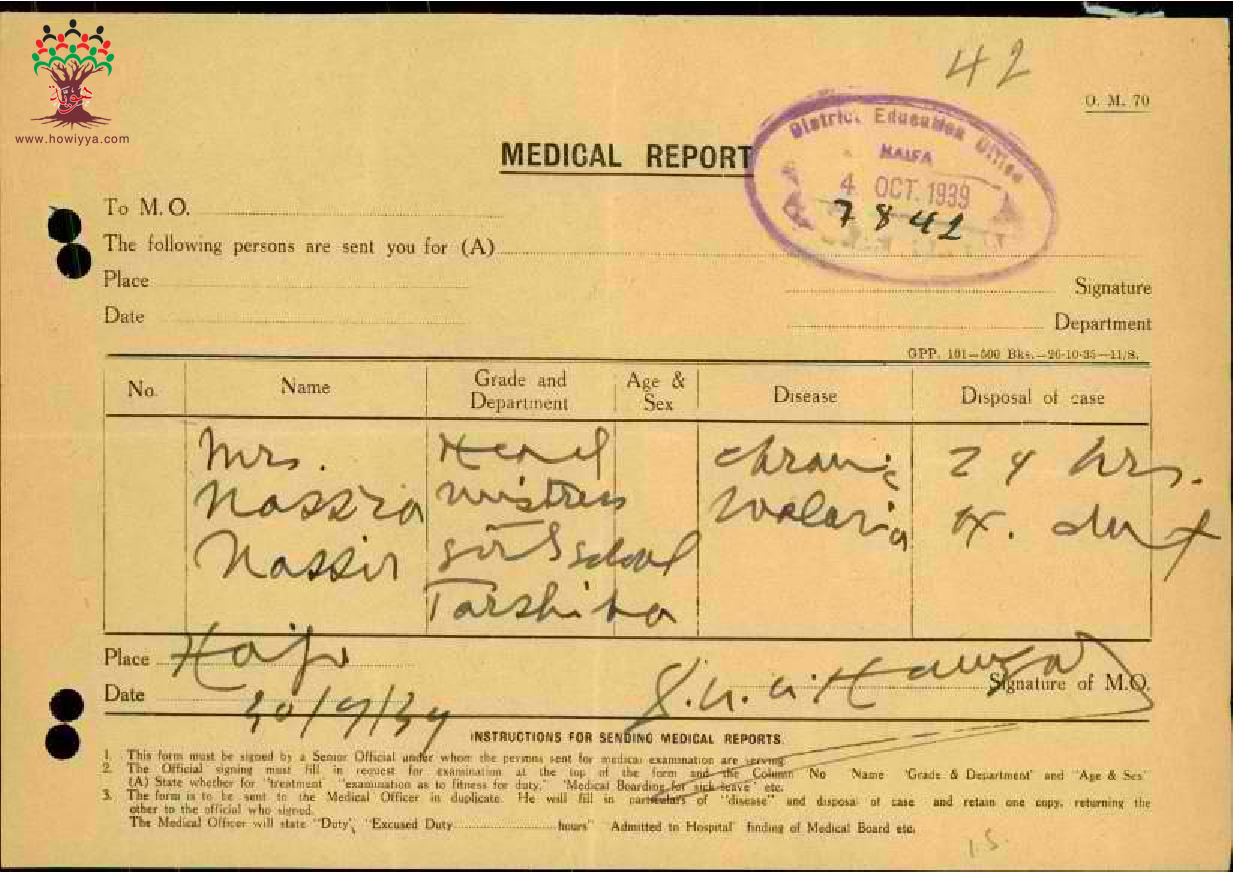 42
www.howiyya.com
O. M. 70
MEDICAL REPORT
District Education Office
HAIFA
4 OCT. 1939
7842
To M. O.
The following persons are sent you for (A)
Place
Signature
Date
Department
GPP. 101—500 Bks.—26-10-35—11/8.
No. Name Grade and Department Age & Sex Disease Disposal of case
Mrs. Head chronic 24 hrs.
Nassira mistress malaria ex. duty
Nassir Girls school
Tarshiha
Place Haifa
Signature of M.O.
Date 30/9/39
INSTRUCTIONS FOR SENDING MEDICAL REPORTS.
1. This form must be signed by a Senior Official under whom the persons sent for medical examination are serving
2. The Official signing must fill in request for examination at the top of the form and the Column No Name 'Grade & Department' and "Age & Sex"
(A) State whether for "treatment "examination as to fitness for duty," "Medical Boarding for sick leave" etc.
3. The form is to be sent to the Medical Officer in duplicate. He will fill in particulars of "disease" and disposal of case and retain one copy, returning the
other to the official who signed.
The Medical Officer will state "Duty", "Excused Duty hours" "Admitted to Hospital" finding of Medical Board etc.